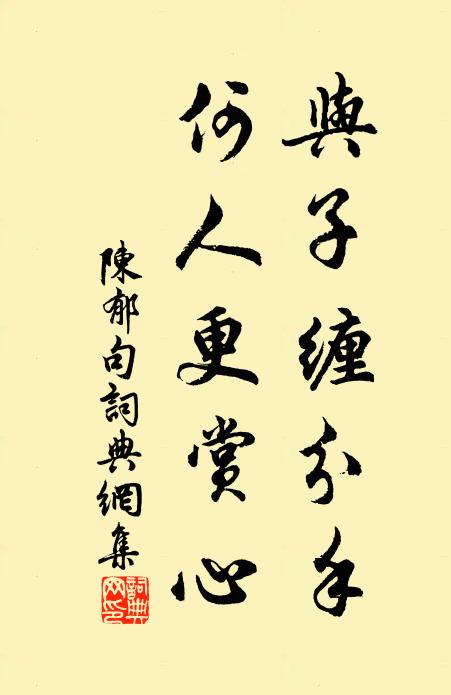 與子纏分手
何人更賞心
陳郁句詞典網集
詞典網印